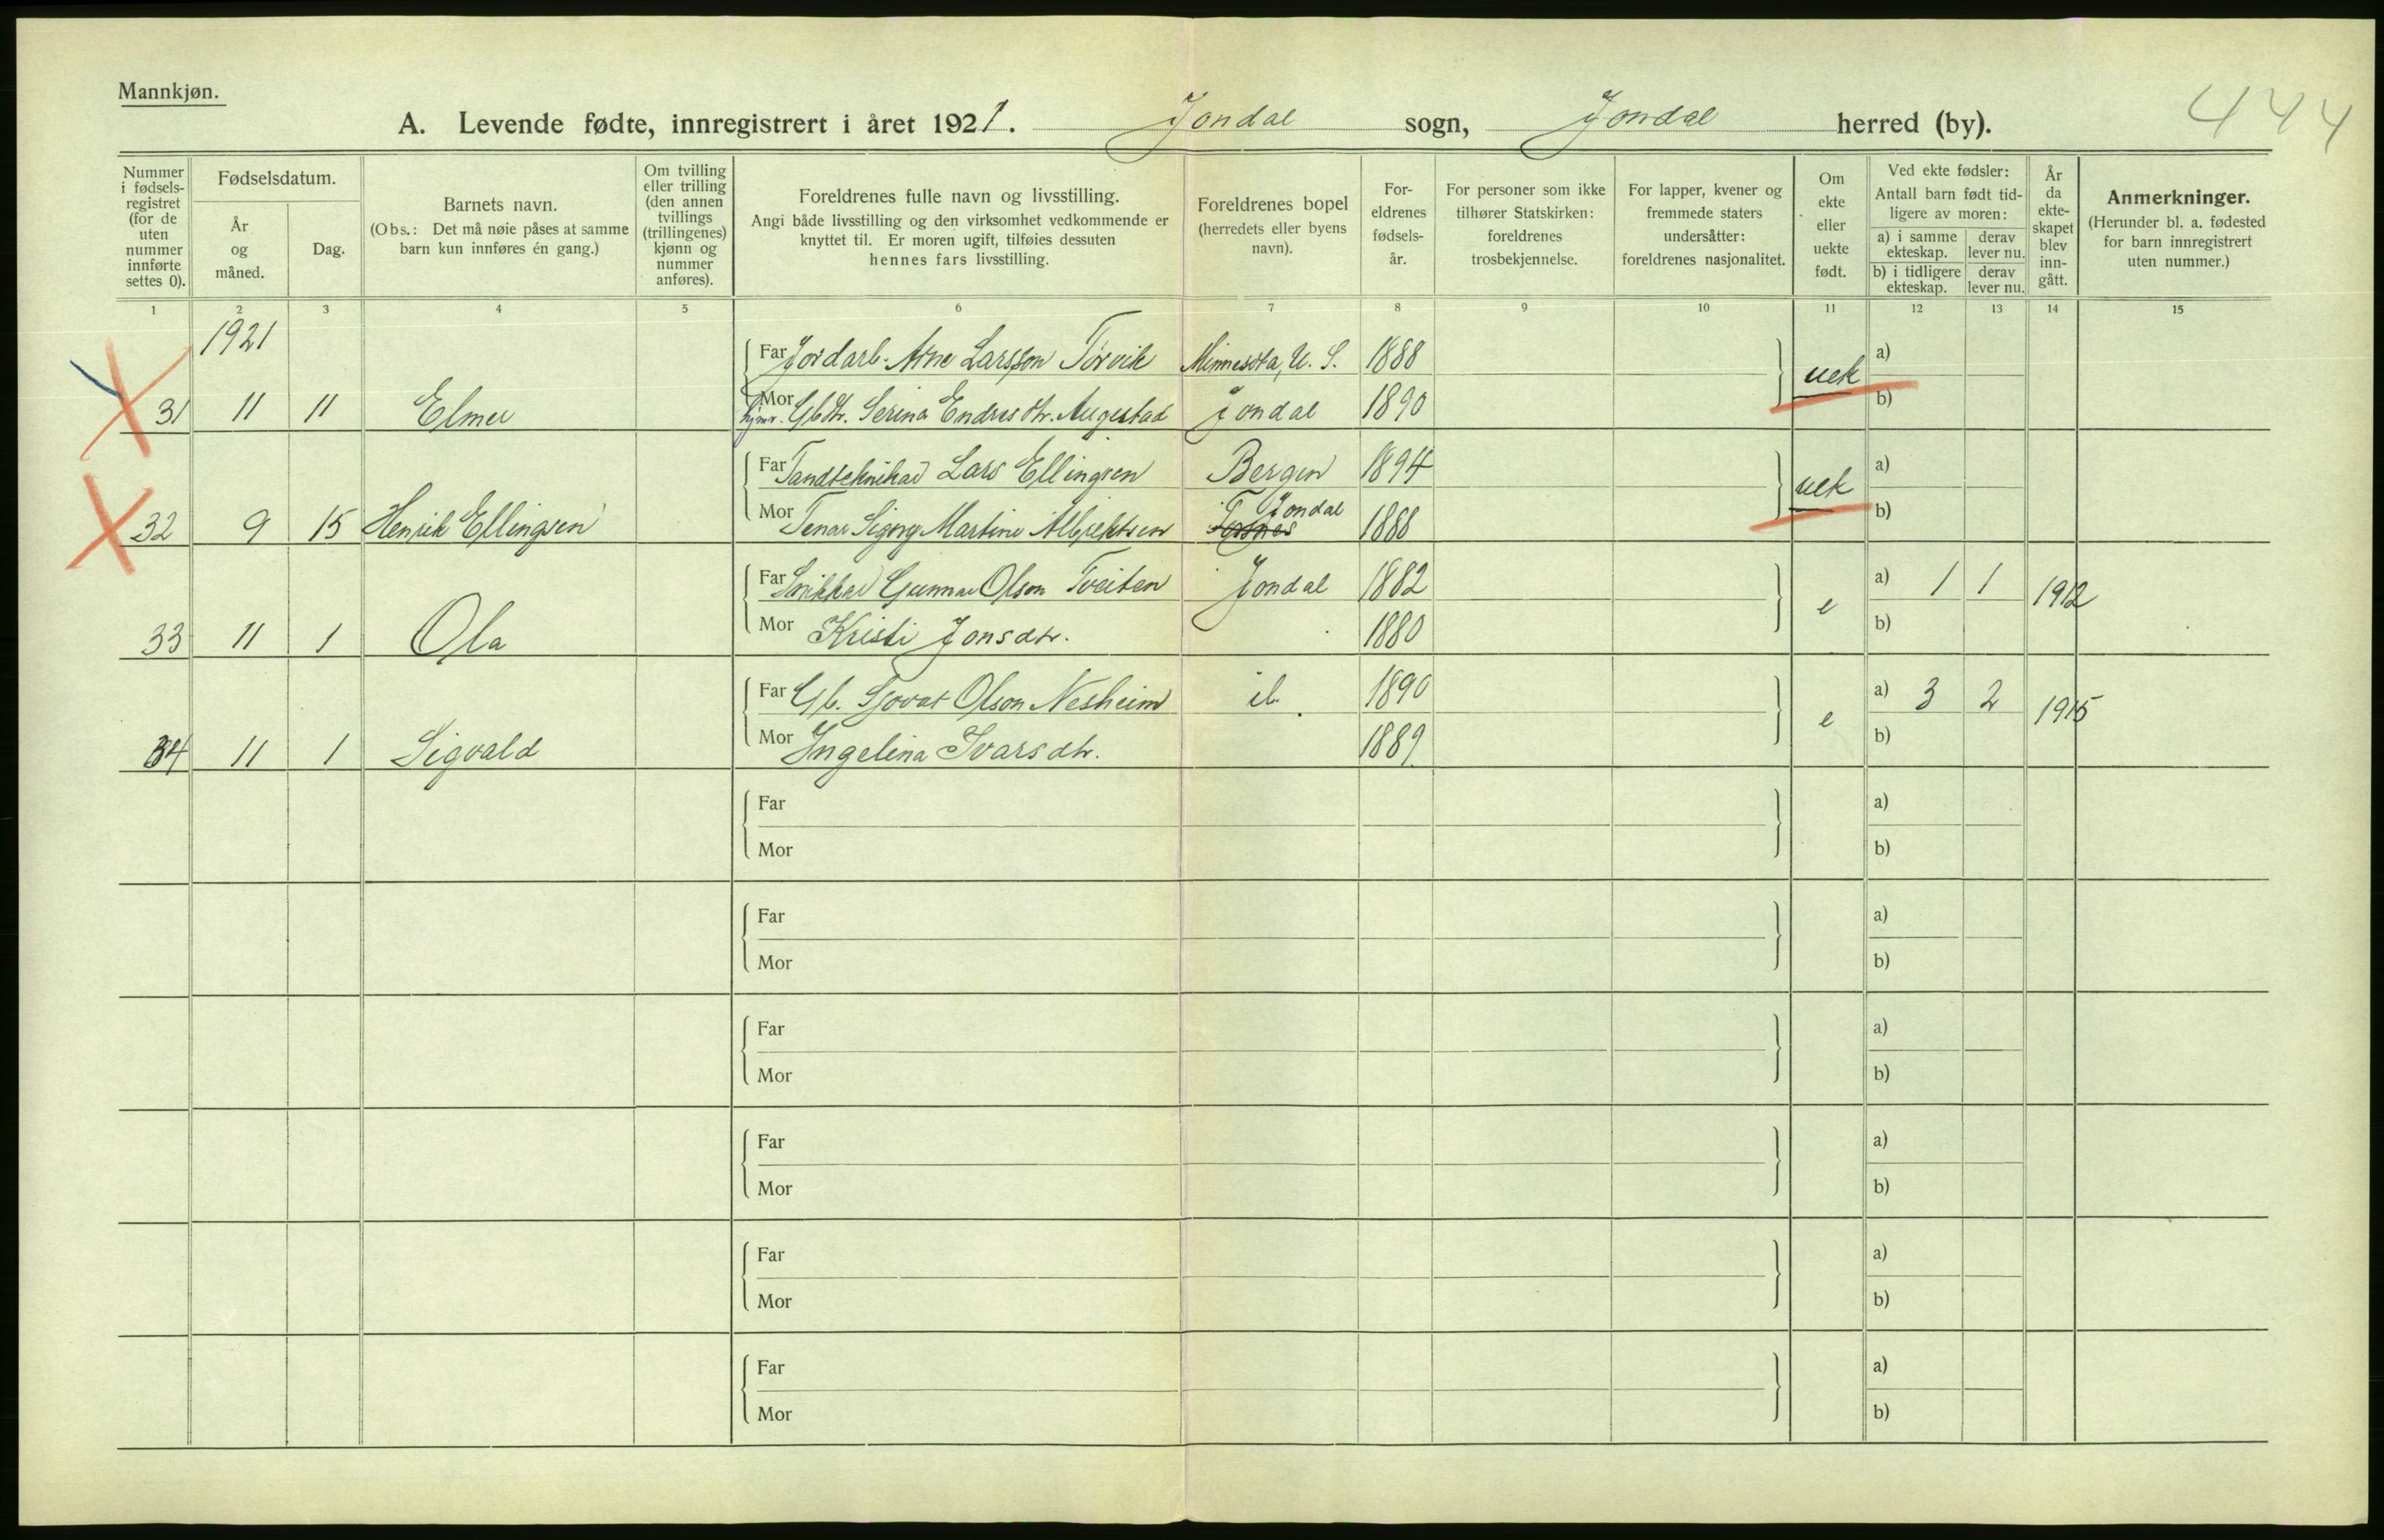 Mannkjøn.
A. Levende fødte, innregistrert i året 1921. Jondal sogn, Jondal herred (by). 444
Nummer i fødsels-registret (for de uten nummer innførte settes 0).
Fødselsdatum.
År og måned.
Dag.
Barnets navn.
(Obs.: Det må nøie påses at samme barn kun innføres én gang.)
Om tvilling eller trilling (den annen tvillings (trillingenes) kjønn og nummer anføres).
Foreldrenes fulle navn og livsstilling.
Angi både livsstilling og den virksomhet vedkommende er knyttet til. Er moren ugift, tilføies dessuten hennes fars livsstilling.
Foreldrenes bopel (herredets eller byens navn).
For-eldrenes fødsels-år.
For personer som ikke tilhører Statskirken: foreldrenes trosbekjennelse.
For lapper, kvener og fremmede staters undersåtter: foreldrenes nasjonalitet.
Om ekte eller uekte født.
Ved ekte fødsler: Antall barn født tid-ligere av moren:
a) i samme ekteskap. derav lever nu.
b) i tidligere ekteskap. derav lever nu.
År da ekte-skapet blev inn-gått.
Anmerkninger.
(Herunder bl. a. fødested for barn innregistrert uten nummer.)
1 2 3 4 5 6 7 8 9 10 11 12 13 14 15
1921
Far Jordarb. Arne Larsson Törvik Minnesota, U. S. 1888 uek a)
31 11 11 Elmer Mor Gbdtr. Serina Endresdtr. Augestad Jondal 1890 b)
Far Tandtekniker Lars Ellingsen Bergen 1894 uek a)
32 9 15 Henrik Ellingsen Mor Signy Martine Albrektsen Jondal 1888 b)
Far Snikkar Gunnar Olson Tveiten Jondal 1882 e a) 1 1 1912
33 11 1 Ola Mor Kristi Jonsdtr. 1880 b)
Far Gb. Sjovat Olson Nesheim il. 1890 e a) 3 2 1915
34 11 1 Sigvald Mor Ingelina Ivarsdtr. 1889 b)
Far a)
Mor b)
Far a)
Mor b)
Far a)
Mor b)
Far a)
Mor b)
Far a)
Mor b)
Far a)
Mor b)